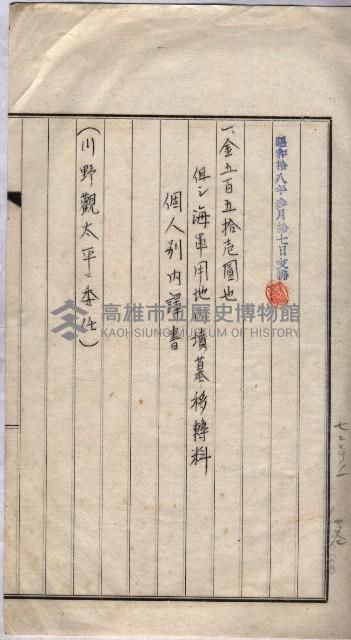 昭和拾八年參月拾七日支拂
一、金五百五拾壱圓也
但シ海軍用地墳墓移轉料
個人別內譯書
(川野觀太平ニ委任)
高雄市立歷史博物館
KAOHSIUNG MUSEUM OF HISTORY